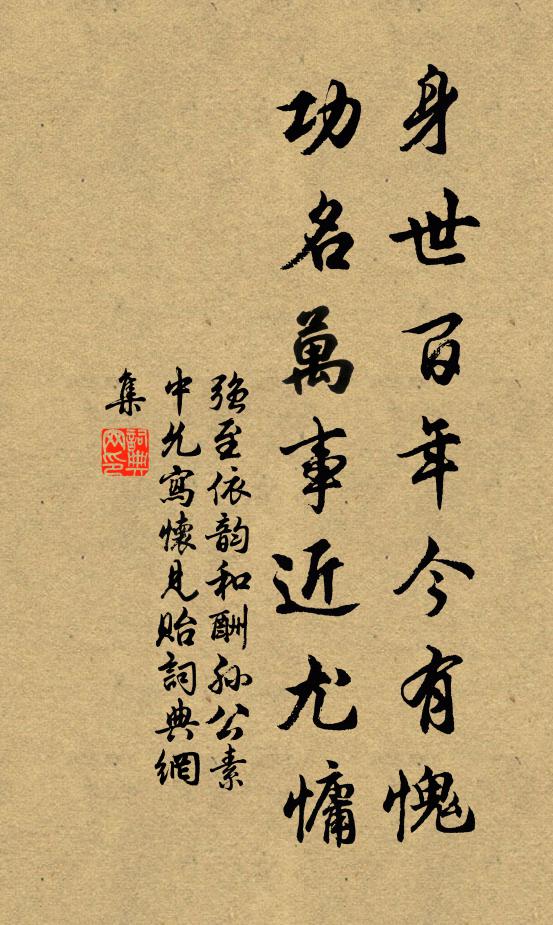 身世百年今有愧
功名萬事近尤慵
強至依韵和酬孫公素
中允寫懷見貽詞典網
集
詞典網印